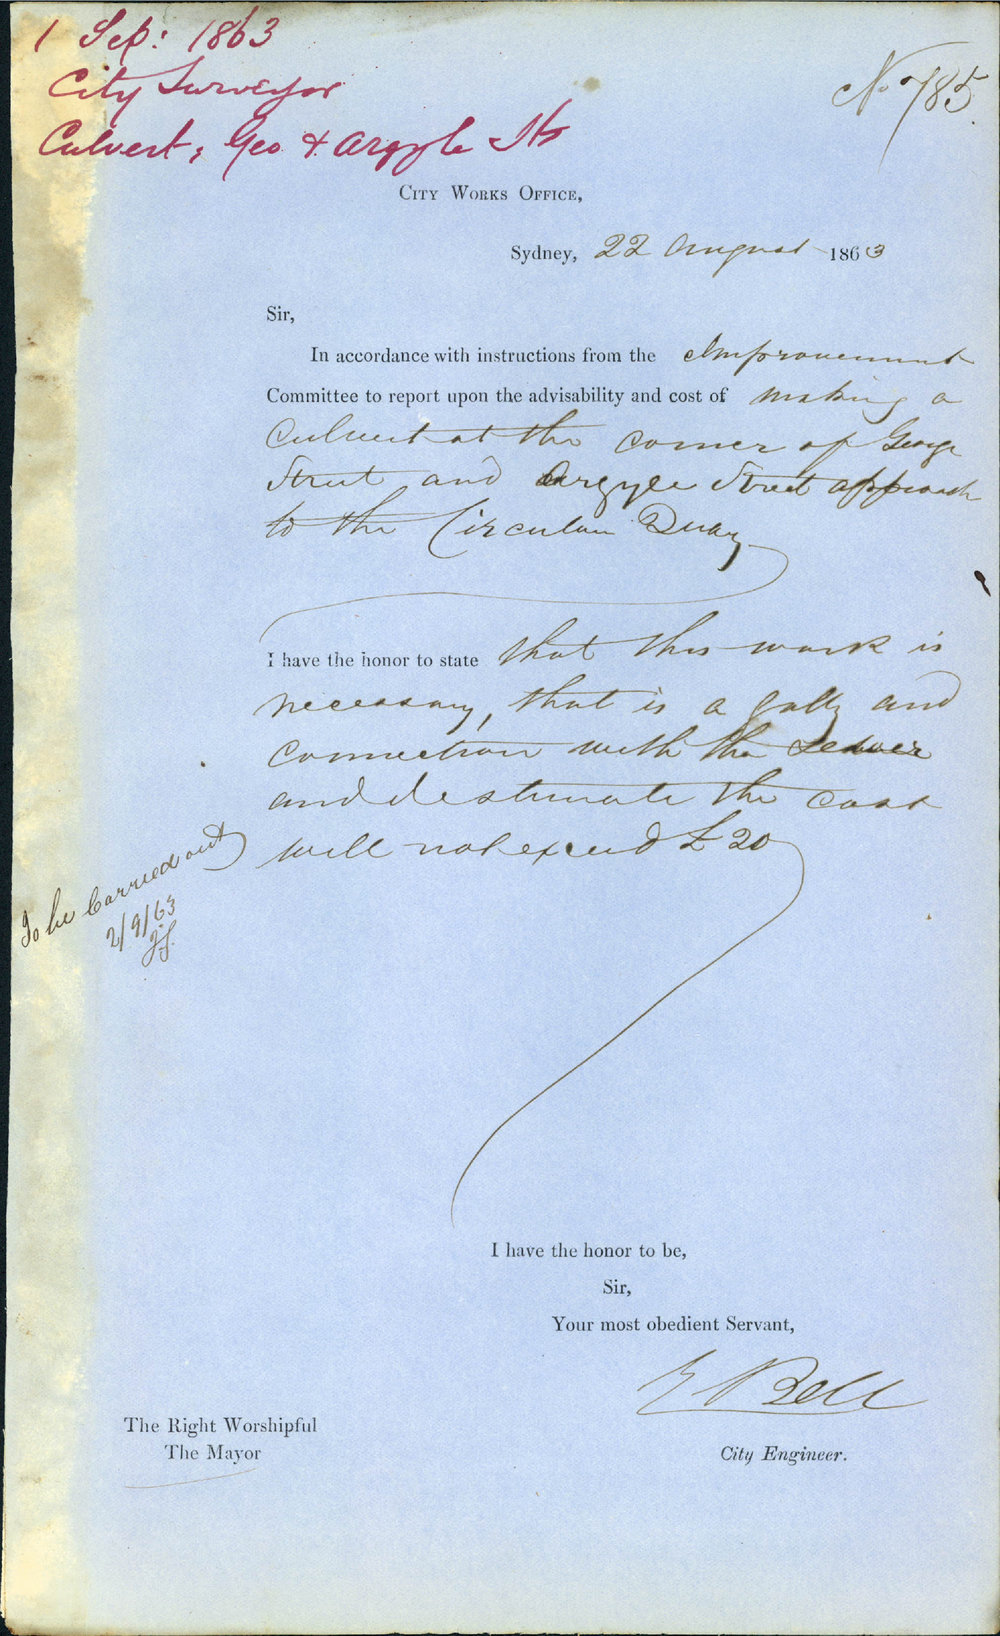 1 Sep: 1863
City Surveyor
Culvert, Geo & Argyle Sts
No 785
City Works Office,
Sydney, 22 August 1863
Sir,
In accordance with instructions from the Improvement
Committee to report upon the advisability and cost of making a
Culvert at the corner of George
Street and Argyle Street approach
to the Circular Quay
I have the honor to state that this work is
necessary, that is a gully and
connection with the Sewer
and I estimate the cost
will not exceed £20
To be Carried out
2/9/63
I have the honor to be,
Sir,
Your most obedient Servant,
E Bell
The Right Worshipful
The Mayor
City Engineer.